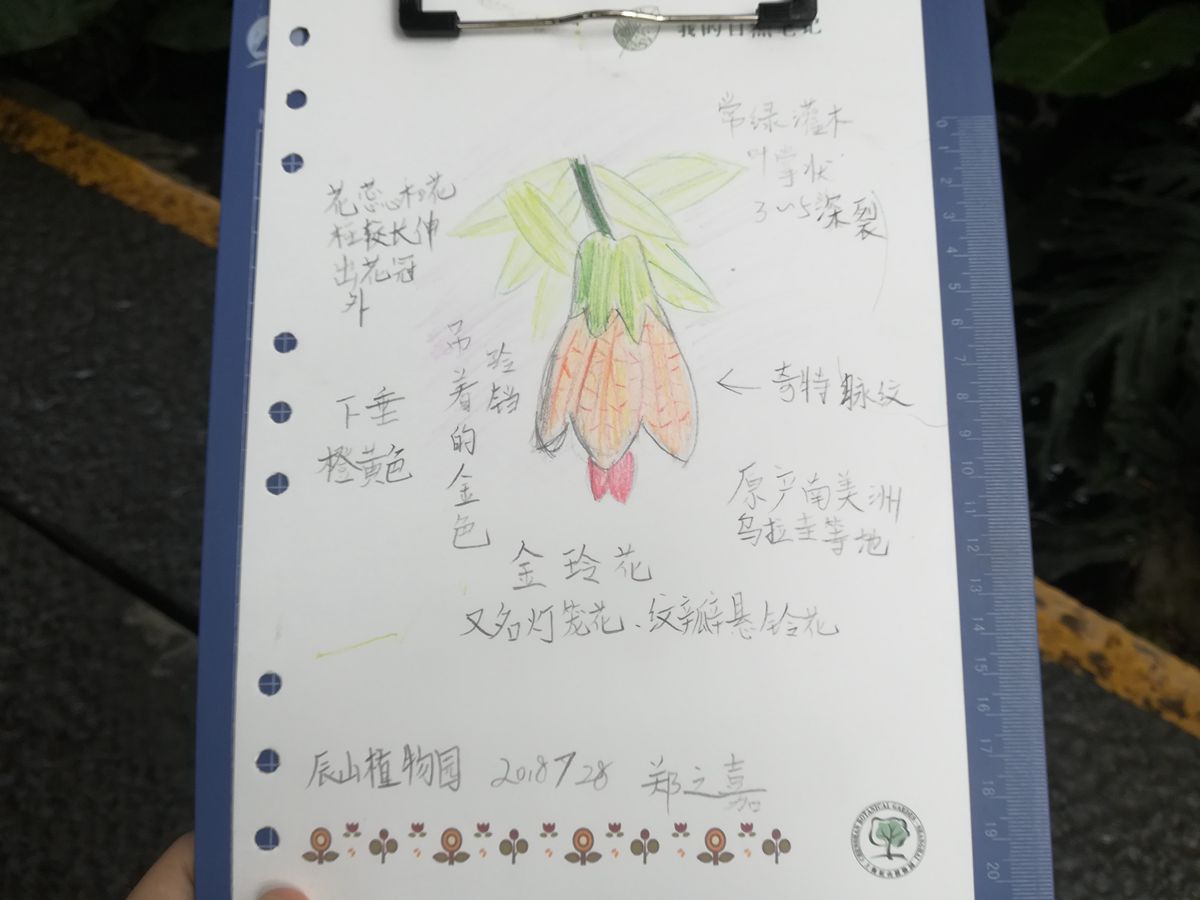 我的自然笔记
常绿灌木
叶掌状
3~5深裂
花蕊和花
柱较长伸
出花冠
外
吊着的金色
玲铛
奇特脉纹
下垂
橙黄色
原产南美洲
乌拉圭等地
金玲花
又名灯笼花、纹瓣悬铃花
辰山植物园 2018 7/28 郑之嘉
CHENSHAN BOTANICAL GARDEN · SHANGHAI
上海辰山植物园
0
1
2
3
4
5
6
7
8
9
10
11
12
13
14
15
16
17
18
19
20